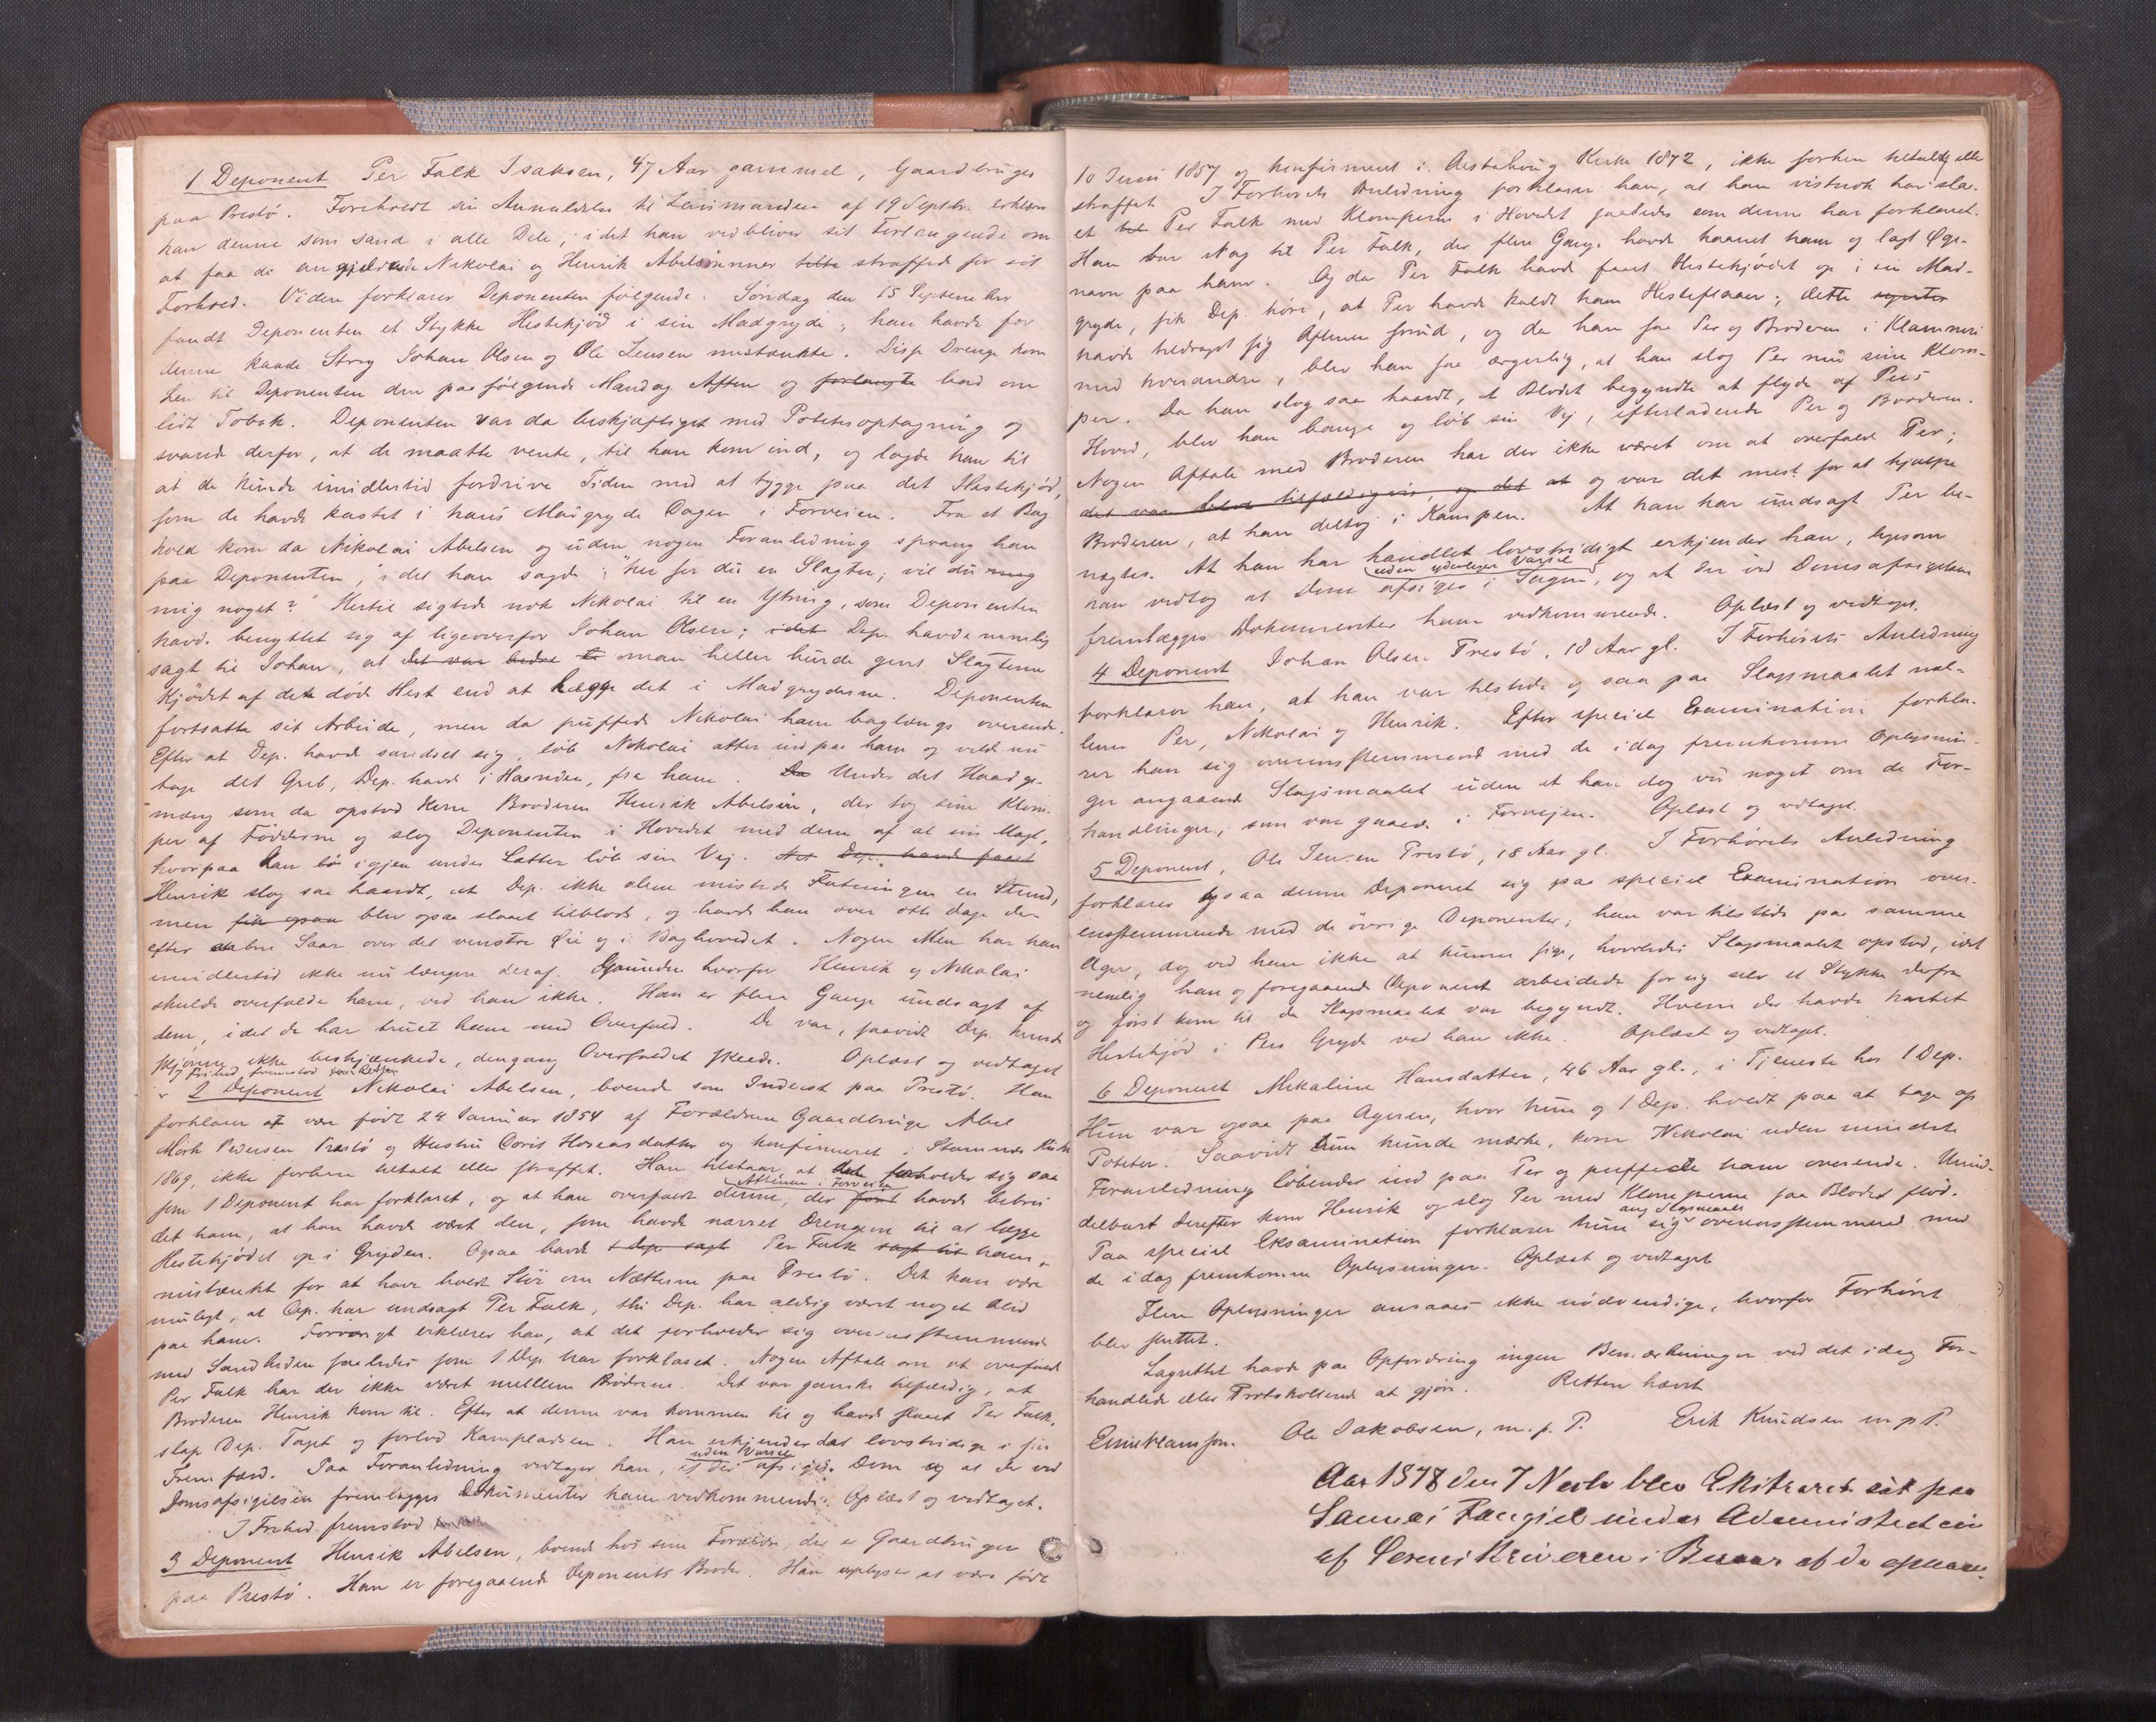 1 Deponent Per Falk Isaksen, 47 Aar gammel, Gaardbruger
paa Prestö. Foreholdt sin Anmeldelse til Lensmanden af 19 Septbr. erklærer
han denne som sand i alle Dele, idet han vedbliver sit Forlangende om
at faa de angjeldende Nikolai og Henrik Abelsönner straffede for sit
Forhold. Videre forklarer Deponenten fölgende. Söndag den 15 September
fandt Deponenten et Stykke Hestekjöd i sin Madgryde; han havde for
denne kaade Streg Johan Olsen og Ole Jensen mistænkte. Disse Drenge kom
hen til Deponenten den paafölgende Mandag Aften og forlangte bad om
lidt Tobak. Deponenten var da beskjæftiget med Potetesoptagning og
svared derfor, at de maatte vente, til han kom ind, og lagde han til
at de kunde imidlertid fordrive Tiden med at tygge paa det Hestekjöd,
som de havde kastet i hans Madgryde Dagen i Forveien. Fra et Bag
hold kom da Nikolai Abelsen og uden nogen Foranledning sprang han
paa Deponenten, idet han sagde: "her ser du en Slagter; vil du mig
mig noget?" Hertil sigtede nok Nikolai til en Ytring, som Deponenten
havde benyttet sig af ligeoverfor Johan Olsen; idet Dep. havde nemlig
sagt til Johan, at det var bedre man heller burde gjemt Slagterne
Kjödet af den döde Hest end at lægge det i Madgryderne. Deponenten
fortsatte sit Arbeide, men da puffede Nikolai ham baglængs overende.
Efter at Dep. havde sandset sig, löb Nikolai atter ind paa ham og vilde nu
tage det Greb, Dep. havde i Haanden, fra ham. Da Under det Haandge-
mæng som da opstod kom Broderen Henrik Abelsen, der tog sine Klom-
per af Födderne og slog Deponenten i Hovedet med dem af al sin Magt,
hvorpaa han igjen under Latter löb sin Vej. Dep. havde faaet
Henrik slog saa haardt, at Dep. ikke alene mistede Fatningen en Stund,
men fik ogsaa blev ogsaa slaaet tilblods, og havde han over otte dage der
efter aabne Saar over det venstre Öie og i Baghovedet. Nogen Men har han
imidlertid ikke nu længere deraf. Grunden hvorfor Henrik og Nikolai
skulde overfalde ham, ved han ikke. Han er flere Gange undsagt af
dem, idet de har truet ham med Overfald. De var, saavidt Dep. kunde
skjönne ikke beskjænkede, dengang Overfaldet skeede. Oplæst og vedtaget
I Frihed fremstod for Retten
2 Deponent Nikolai Abelsen, boende som Inderst paa Prestö. Han
forklarer at være födt 24 Januar 1854 af Forældrene Gaardbruger Abel
Mörk Pedersen Prestö og Hustru Doris Hoseasdatter og konfirmeret i Stamnes Kirke
1869, ikke forhen tiltalt eller straffet. Han tilstaar, at det forholder sig saa
Aftenen i Forveien
som 1 Deponent har forklaret, og at han overfaldt denne, der först havde bebrei
det ham, at han havde vært den, som havde narret Drengene til at lægge
Hestekjödet op i Gryden. Ogsaa havde 1 dep. sagt Per Falk sagt til ham,
mistænkt for at have holdt Stöi om Nætterne paa Prestö. Det kan være
muligt, at Dep. har undsagt Per Falk, thi Dep. har aldrig været noget blid
paa ham. Forövrigt erklærer han, at det forholder sig overensstemmende
med Sandheden saaledes som 1 Dep. har forklaret. Nogen Aftale om at overfalde
Per Falk har der ikke været mellem Brödrene. Det var ganske tilfældig, at
Broderen Henrik kom til. Efter at denne var kommen til og havde slaaet Per Falk,
slap Dep. Taget og forlod Kampladsen. Han erkjender det lovstridige i sin
uden Varsel
Fremfærd. Paa Foranledning vedtager han, at der afsiges Dom og at de ved
Domsafsigelsen fremlægges Dokumenter ham vedkommende. Oplæst og vedtaget.
I Frihed fremstod
3 Deponent Henrik Abelsen, boende hos sine Forældre, der er Gaardbruger
paa Prestö. Han er foregaaende Deponents Broder. Han oplyser at være födt
10 Juni 1857 og konfirmeret i Alstahoug Kirke 1872, ikke forhen tiltalt eller
straffet. I Forhörets Anledning forklarer han, at han vistnok har sla-
et Per Falk med Klomperne i Hovedet saaledes som denne har forklaret.
Han bar Nag til Per Falk, der flere Gange havde haanet ham og lagt Öge-
navn paa ham. Og da Per Falk havde faaet Hestekjödet op i sin Mad-
gryde, fik Dep. höre, at Per havde kaldt ham Hesteflaaer; dette synter
havde tildraget sig Aftenen forud, og da han saa Per og Broderen i Klammeri
med hverandre, blev han saa ærgerlig, at han slog Per med sine Klom-
per. Da han slog saa haardt, at Blodet begyndte at flyde af Pers
Hoved, blev han bange og löb sin Vej, efterladende Per og Broderen.
Nogen Aftale med Broderen har der ikke været om at overfalde Per;
det var blot tilfældigvis, og det at og var det mest for at hjælpe
Broderen, at han deltog i Kampen. At han har undsagt Per be-
nægtes. At han har handlet lovstridigt erkjender han, ligesom
uden yderligere Varsel
han vedtog at Dom afsiges i Sagen, og at der ved Domsafsigelsen
fremlægges Dokumenter ham vedkommende. Oplæst og vedtaget.
4 Deponent Johan Olsen Prestö, 18 Aar gl. I Forhörets Anledning
forklarer han, at han var tilstede og saa paa Slagsmaalet mel-
lem Per, Nikolai og Henrik. Efter speciel Examination forkla-
rer han sig overensstemmende med de idag fremkomne Oplysnin-
ger angaaende Slagsmaalet uden at han dog ved noget om de For-
handlinger, som var gaaede i Forvejen. Oplæst og vedtaget.
5 Deponent, Ole Jensen Prestö, 18 Aar gl. I Forhörets Anledning
forklarer ogsaa denne Deponent sig paa speciel Examination over-
ensstemmende med de övrige Deponenter; han var tilstede paa samme
Ager, dog ved han ikke at kunne sige, hvorledes Slagsmaalet opstod, idet
nemlig han og foregaaende Deponent arbeidede for sig selv et Stykke derfra
og först kom til da Slagsmaalet var begyndt. Hvem der havde kastet
Hestekjöd i Pers Gryde ved han ikke. Oplæst og vedtaget.
6 Deponent Mikaline Hansdatter, 46 Aar gl., i Tjeneste hos 1 Dep.
Hun var ogsaa paa Ageren, hvor hun og 1 Dep. holdt paa at tage op
Poteter. Saavidt hun kunde mærke, kom Nikolai uden mindste
Foranledning löbendes ind paa Per og puffede ham overende. Umid-
delbart derefter kom Henrik og slog Per med Klomperne saa Blodet flöd.
ang Slagsmaalet
Paa speciel Eksamination forklarer hun sig overensstemmend med
de idag fremkomne Oplysninger. Oplæst og vedtaget
Flere Oplysninger ansaaes ikke nödvendige, hvorfor Forhöret
blev sluttet.
Lagrettet havde paa Opfordring ingen Bemærkninger ved det idag For-
handlede eller Protokollerede at gjöre. Retten hævet
Ole Jakobsen, m. p. P. Erik Knudsen m p P.
Aar 1878 den 7 Novbr blev Ekstraret sat paa
af Sorenskriveren i